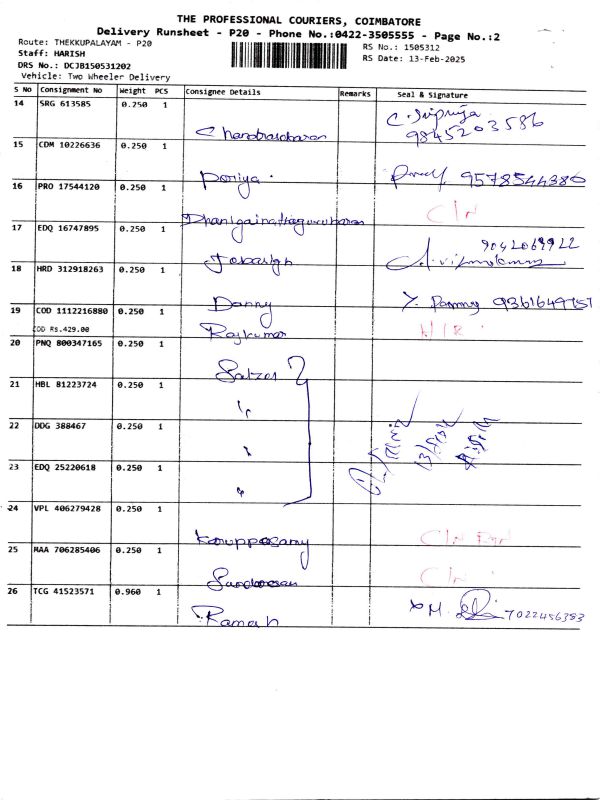 THE PROFESSIONAL COURIERS, COIMBATORE
Delivery Runsheet - P20 - Phone No.:0422-3505555 - Page No.:2
Route: THEKKUPALAYAM - P20
Staff: HARISH
DRS No.: DCJB150531202
Vehicle: Two Wheeler Delivery
RS No.: 1505312
RS Date: 13-Feb-2025
S No Consignment No Weight PCS Consignee Details Remarks Seal & Signature
14 SRG 613585 0.250 1
9845203586
15 CDM 10226636 0.250 1
Doniya 9578544380
16 PRO 17544120 0.250 1
C/N
17 EDQ 16747895 0.250 1
18 HRD 312918263 0.250 1
Danny 9361649757
19 COD 1112216880 0.250 1
COD Rs.429.00 Rajkumar
20 PNQ 800347165 0.250 1
21 HBL 81223724 0.250 1
22 DDG 388467 0.250 1
23 EDQ 25220618 0.250 1
24 VPL 406279428 0.250 1
Karuppasamy C/N
25 MAA 706285406 0.250 1
C/N
26 TCG 41523571 0.960 1
7022456393